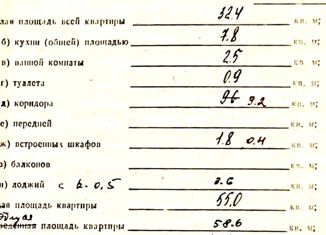 лая площадь всей квартиры 32.4 кв. м;
б) кухни (общей) площадью 7.8 кв. м;
в) ванной комнаты 2.5 кв. м;
г) туалета 0.9 кв. м;
д) коридора 9.2 кв. м;
е) передней кв. м;
ж) встроенных шкафов 1.8 0.4 кв. м;
з) балконов кв. м;
и) лоджий с k-0,5 2.6 кв. м;
ая площадь квартиры 55.0 кв. м;
площадь квартиры 58.6 кв. м;